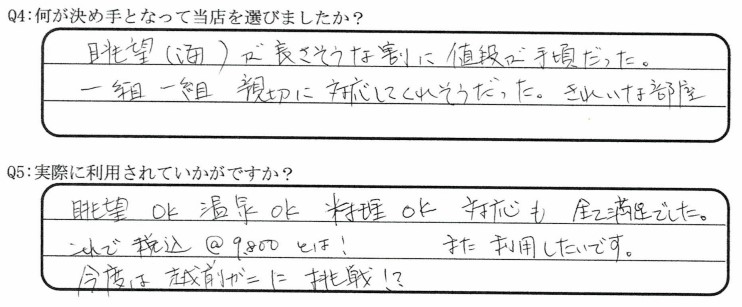 Q4:何が決め手となって当店を選びましたか？
眺望（海）が良さそうな割に値段が手頃だった。
一組一組 親切に対応してくれそうだった。きれいな部屋
Q5:実際に利用されていかがですか？
眺望 OK 温泉 OK 料理 OK 対応も 全て満足でした。
これで税込＠9,800とは！ また利用したいです。
今度は越前ガニに挑戦！？